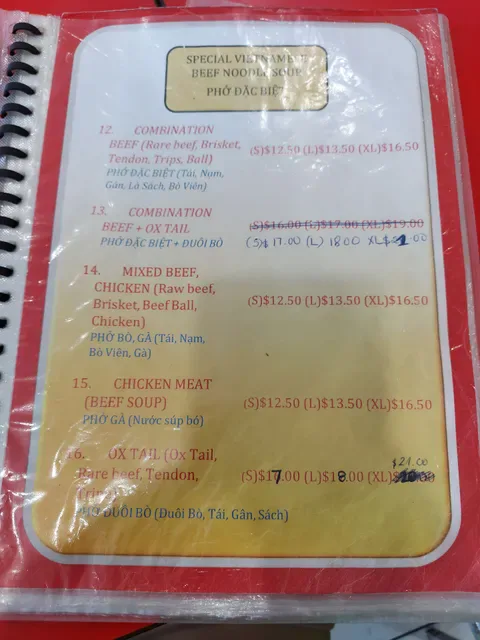 SPECIAL VIETNAMESE
BEEF NOODLE SOUP
PHỞ ĐẶC BIỆT
12. COMBINATION
BEEF (Rare beef, Brisket,
Tendon, Trips, Ball)
(S)$12.50 (L)$13.50 (XL)$16.50
PHỞ ĐẶC BIỆT (Tái, Nạm,
Gân, Lá Sách, Bò Viên)
13. COMBINATION
BEEF + OX TAIL
(S)$16.00 (L)$17.00 (XL)$19.00
PHỞ ĐẶC BIỆT + ĐUÔI BÒ
(S)$ 17.00 (L) 18.00 XL$21.00
14. MIXED BEEF,
CHICKEN (Raw beef,
Brisket, Beef Ball,
Chicken)
(S)$12.50 (L)$13.50 (XL)$16.50
PHỞ BÒ, GÀ (Tái, Nạm,
Bò Viên, Gà)
15. CHICKEN MEAT
(BEEF SOUP)
(S)$12.50 (L)$13.50 (XL)$16.50
PHỞ GÀ (Nước súp bó)
16. OX TAIL (Ox Tail,
Rare beef, Tendon,
Trips)
$21.00
(S)$17.00 (L)$18.00 (XL)
PHỞ ĐUÔI BÒ (Đuôi Bò, Tái, Gân, Sách)